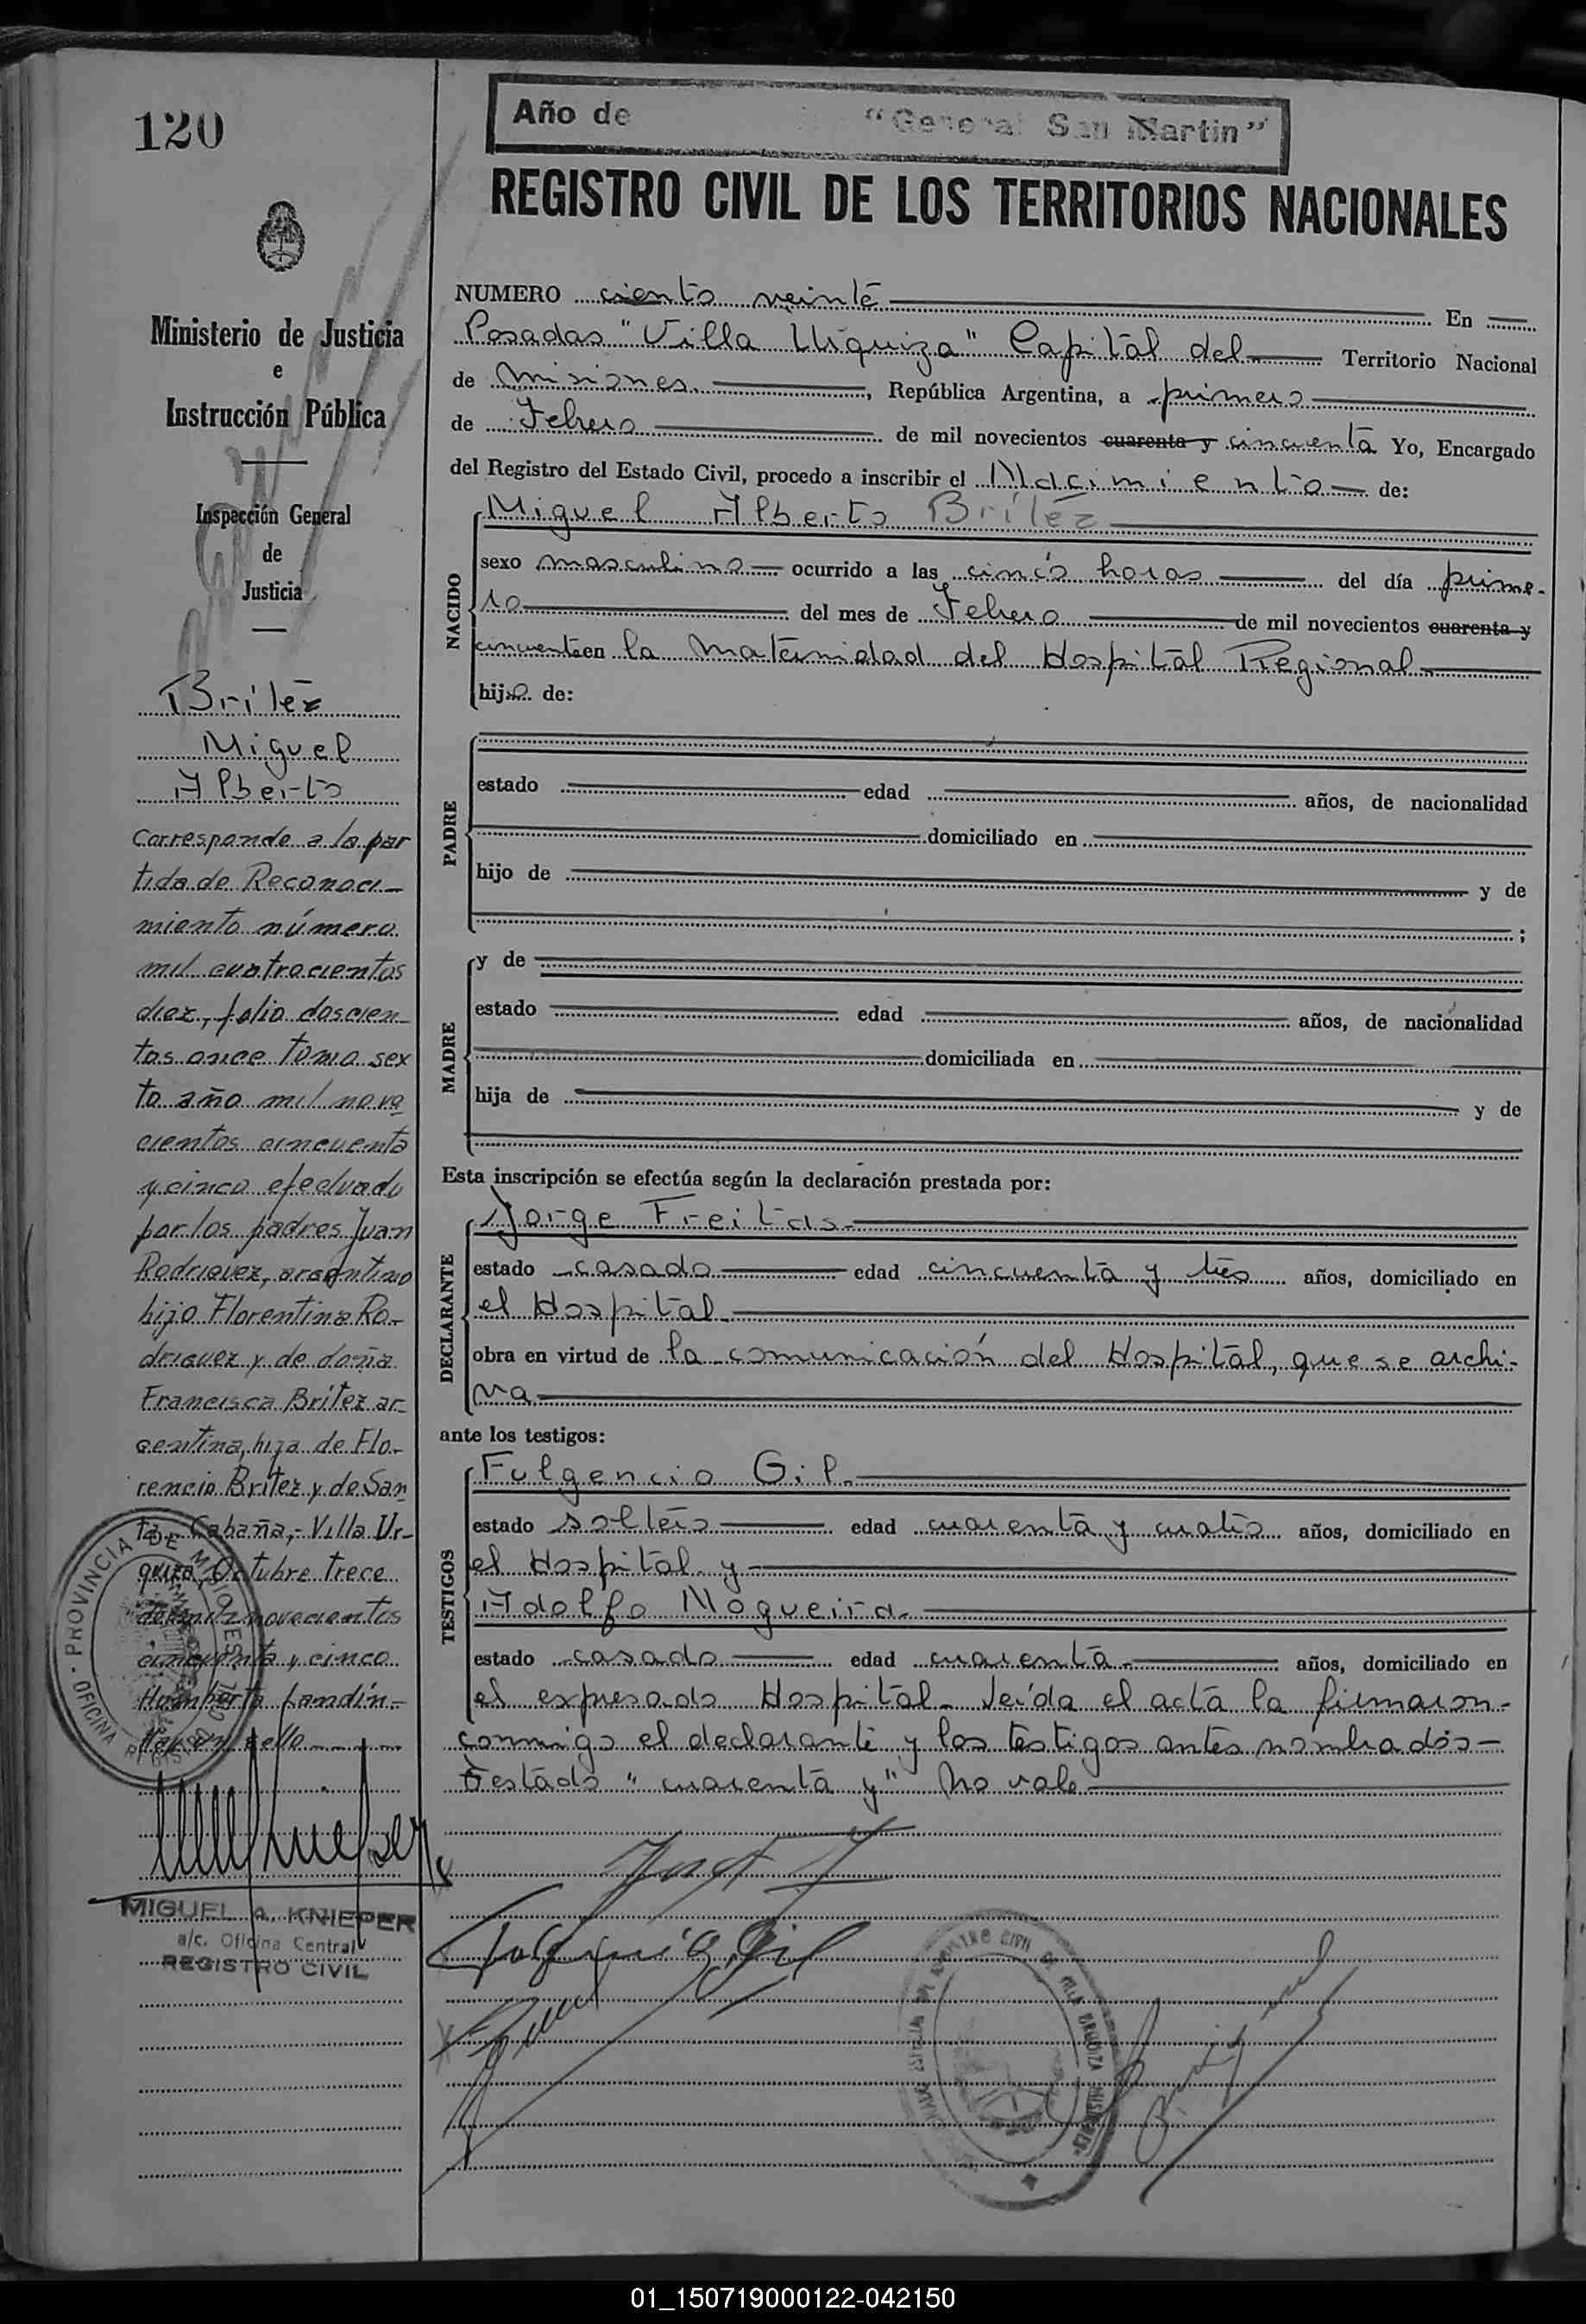 120
Año de "General San Martin"
REGISTRO CIVIL DE LOS TERRITORIOS NACIONALES
Ministerio de Justicia
e
Instrucción Pública
Inspección General
de
Justicia
Britez
Miguel
Alberto
Corresponde a la par
tida de Reconoci-
miento número
mil cuatrocientos
diez, folio doscien-
tos once tomo sex
to año mil nove
cientos cincuenta
y cinco efectuado
por los padres Juan
Rodriguez, argentino
hijo Florentina Ro-
driguez y de doña
Francisca Britez ar-
gentina, hija de Flo-
rencio Britez y de San
ta Cabaña,- Villa Ur-
quiza, Octubre trece
de mil novecientos
cincuenta y cinco
Humberto Landín.-
Hay un sello
PROVINCIA DE MISIONES
OFICINA
MIGUEL A. KNIEPER
a/c. Oficina Central
REGISTRO CIVIL
NUMERO ciento veinte En
Posadas "Villa Urquiza" Capital del Territorio Nacional
de Misiones, República Argentina, a primero
de Febrero de mil novecientos cuarenta y cincuenta Yo, Encargado
del Registro del Estado Civil, procedo a inscribir el Nacimiento de:
NACIDO
Miguel Alberto Britez
sexo masculino ocurrido a las cinco horas del día prime-
ro del mes de Febrero de mil novecientos cuarenta y
cincuenta en la Maternidad del Hospital Regional
hijo de:
PADRE
estado edad años, de nacionalidad
domiciliado en
hijo de y de
;
MADRE
y de
estado edad años, de nacionalidad
domiciliada en
hija de y de
Esta inscripción se efectúa según la declaración prestada por:
DECLARANTE
Jorge Freitas
estado casado edad cincuenta y tres años, domiciliado en
el Hospital
obra en virtud de la comunicación del Hospital, que se archi-
va
ante los testigos:
TESTIGOS
Fulgencio Gil
estado soltero edad cuarenta y cuatro años, domiciliado en
el Hospital y
Adolfo Nogueira
estado casado edad cuarenta años, domiciliado en
el expresado Hospital. Leída el acta la firmaron
conmigo el declarante y los testigos antes nombrados-
Testado "cuarenta y" No vale
01_150719000122-042150